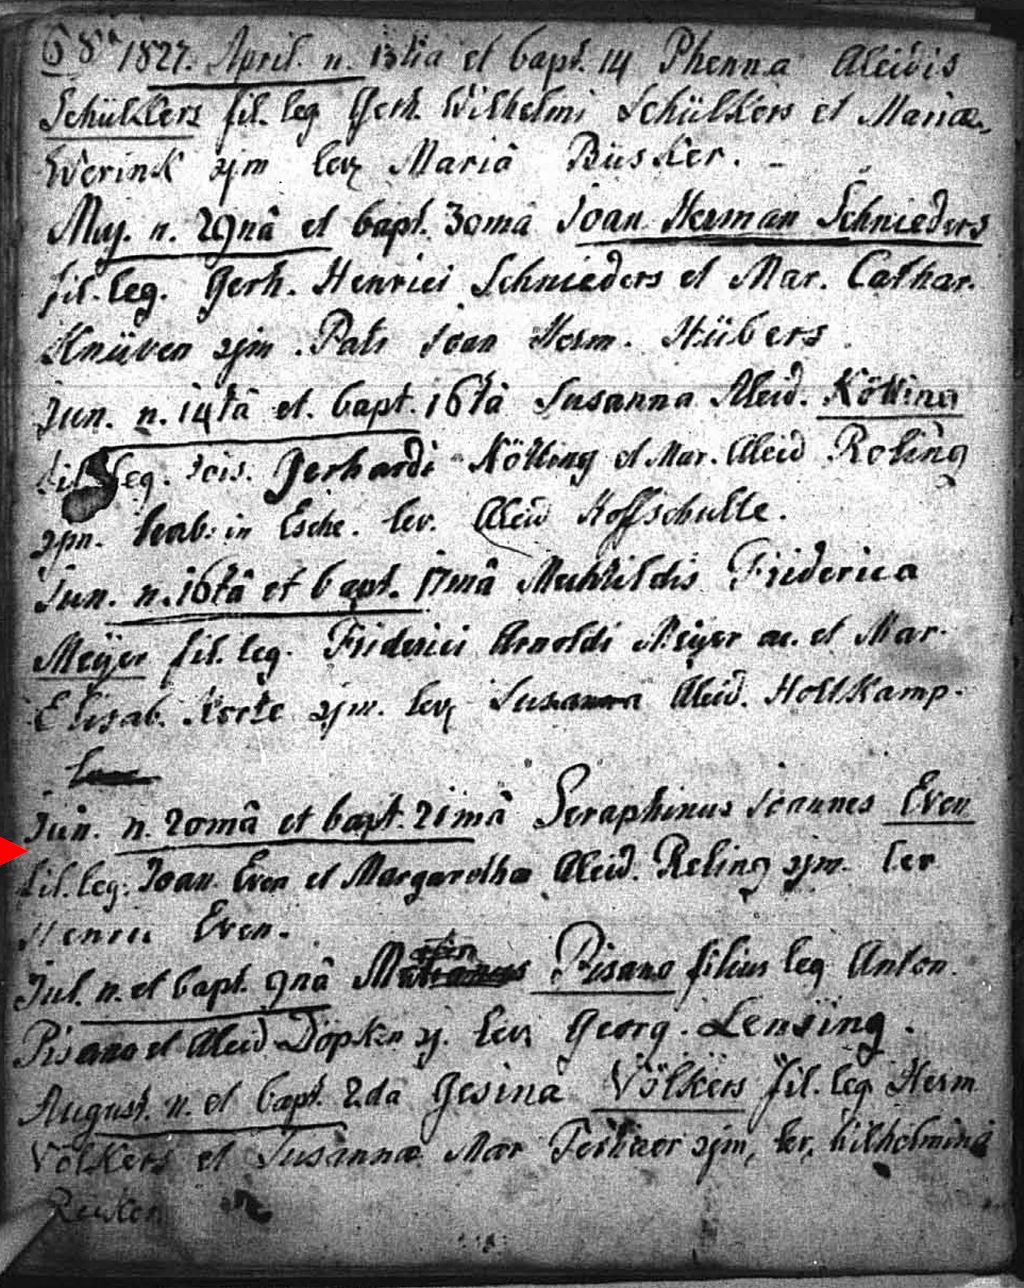 1827. April. n. 13tia et bapt. 14 Phenna Aleidis
Schülkers fil. leg Gerh. Wilhelmi Schülkers et Mariæ
Werink zjm lev Mariâ Büsker.
Maj. n. 29nâ et bapt. 30mâ Joan Herman Schnieders
fil. leg. Gerh. Henrici Schnieders et Mar. Cathar.
Knüven zjm. Patr Joan Herm. Hübers
Jun. n. 14tâ et. bapt. 16tâ Susanna Aleid. Kötting
fil leg. Gerhardi Kötting et Mar. Aleid Roling
zjm. hab: in Esche. lev. Aleid Hoffschulte.
Jun. n. 16tâ et bapt. 17mâ Friderica
Meÿer fil. leg. Friderici Arnoldi Meÿer ac. et Mar.
Elisab. Korte zjm. lev Susanna Aleid. Holtkamp.
Jun. n. 20mâ et bapt. 21mâ Seraphinus Joannes Even
fil. leg. Joan. Even et Margaretha Aleid. Reling zjm. lev
Henric Even.
Jul. n. et bapt. 9nâ Pisano filius leg Anton.
Pisano et Aleid Döpken zj. lev Georg. Lensing.
August. n. et bapt. 2.da Gesina Völkers fil. leg Herm
Völkers et Susannæ Mar zjm, lev, Wilhelmina